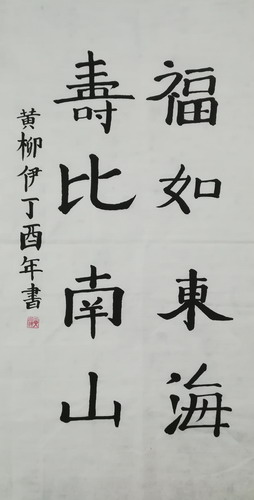 福如東海
壽比南山
黄柳伊丁酉年書